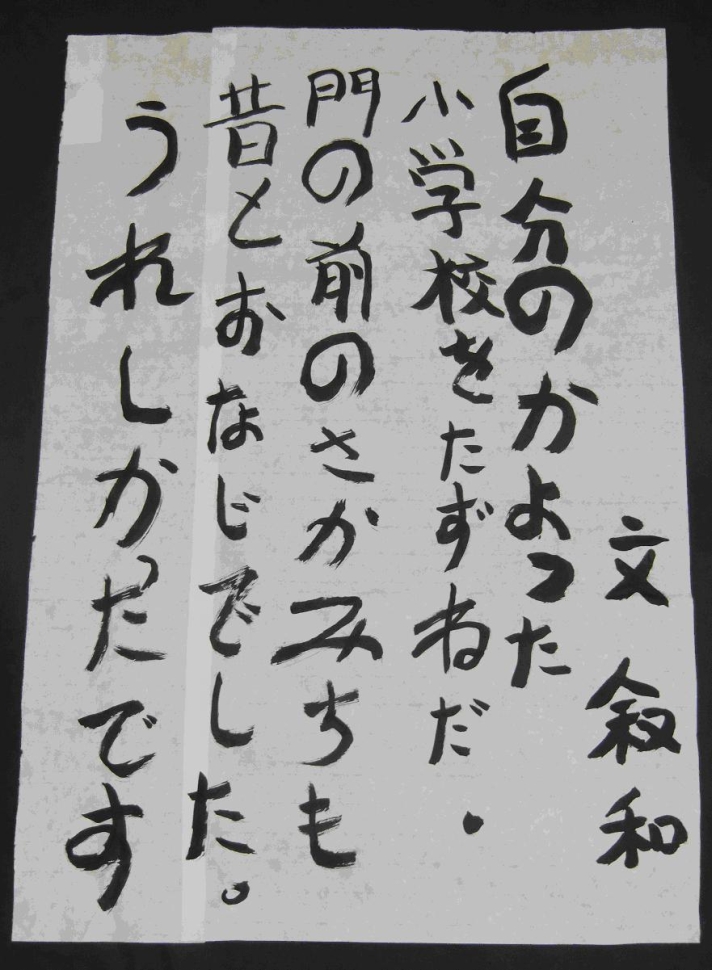 文 叙和
自分のかよった
小学校をたずねだ.
門の前のさかみちも
昔とおなじでした。
うれしかっだです